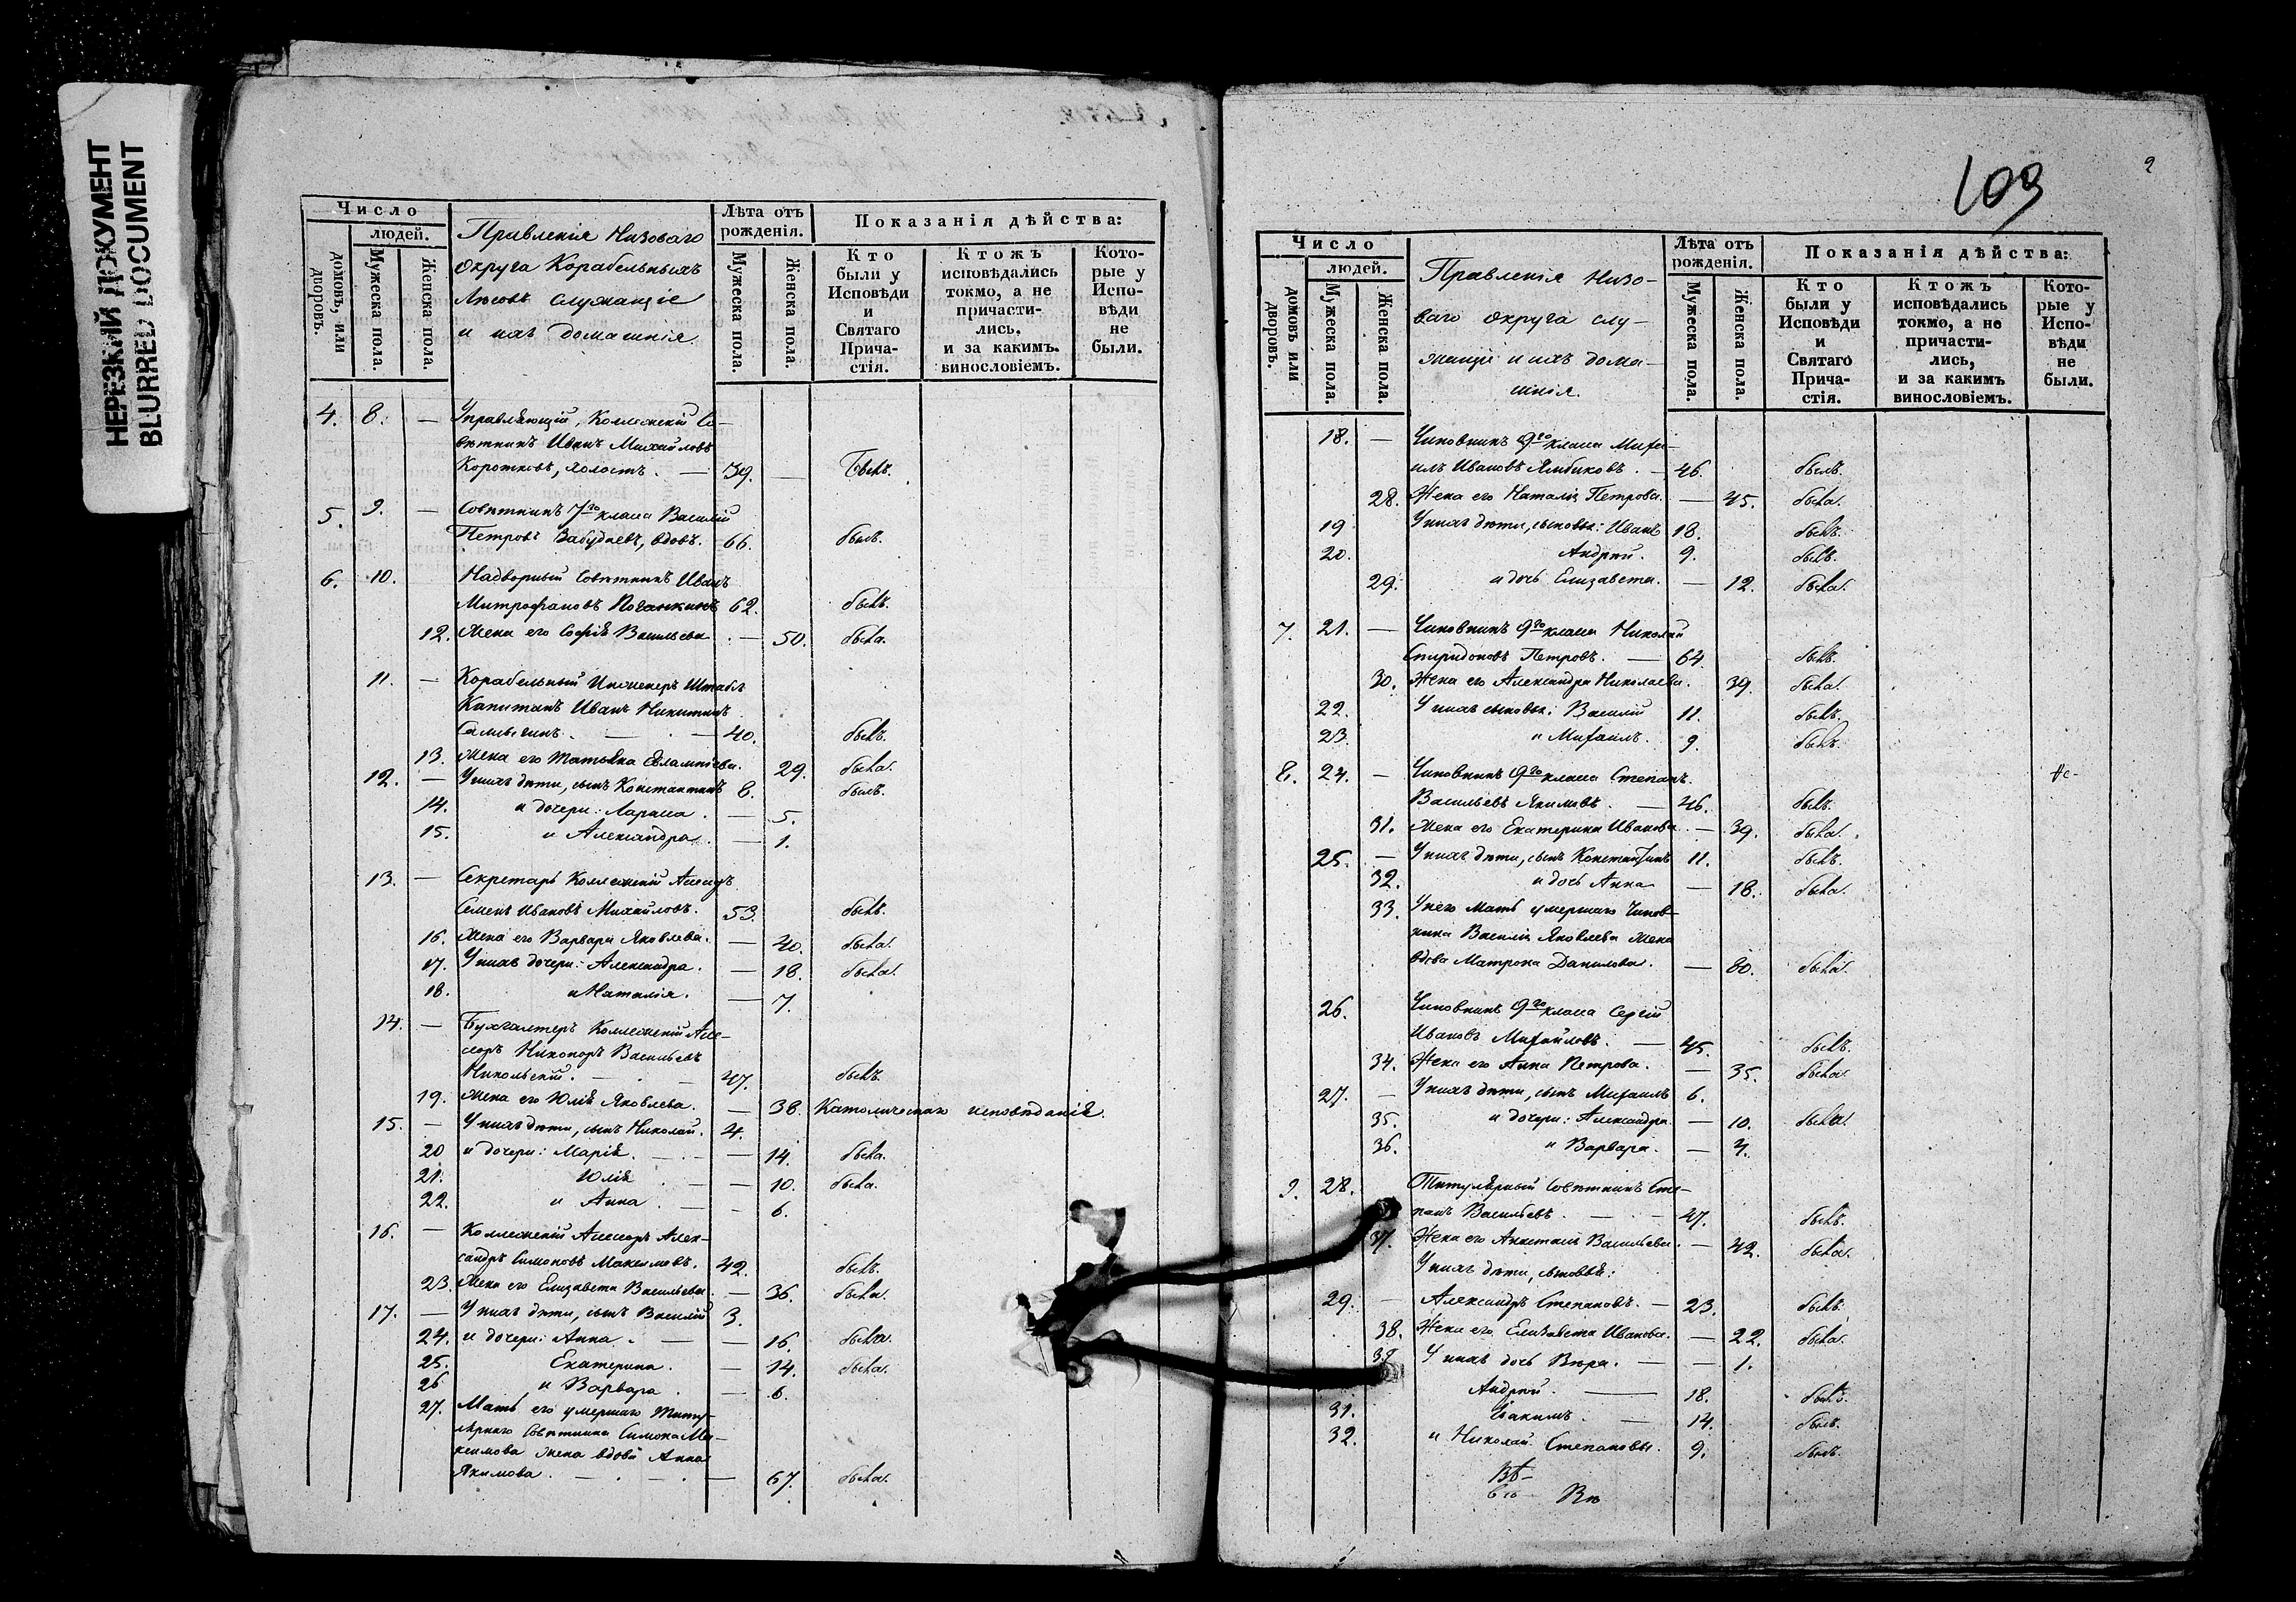 НЕРЕЗКИЙ ДОКУМЕНТ
BLURRED DOCUMENT
Число
людей.
домовъ, или дворовъ.
Мужеска пола.
Женска пола.
Правленія Низоваго
округа Корабельныхъ
Лѣсовъ служащіе
и ихъ домашнія.
Лѣта отъ рожденія.
Мужеска пола.
Женска пола.
Показанія дѣйства:
Кто были у Исповѣди и Святаго Прича-стія.
Ктожъ исповѣдались токмо, а не причасти-лись, и за какимъ винословіемъ.
Кото-рые у Испо-вѣди не были.
4. 8. — Управляющій, Коллежскій Со-
вѣтникъ Иванъ Михайловъ
Коротковъ, холостъ. — 39. — Былъ.
5. 9. — Совѣтникъ 7го класса Василій
Петровъ Забудаевъ, вдовъ. 66. былъ.
6. 10. Надворный Совѣтникъ Иванъ
Митрофановъ Поганкинъ 62. былъ.
12. Жена его Софія Васильева — 50. была.
11. — Корабельный Инженеръ Штабсъ
Капитанъ Иванъ Никитинъ
40. былъ.
13. Жена его Татьяна Евлампіева. 29. была.
12. — У нихъ дѣти, сынъ Константинъ 8. былъ.
14. и дочери: Лариса. — 5.
15. и Александра. — 1.
13. — Секретарь Коллежскій Ассесоръ
Семенъ Ивановъ Михайловъ. 53. былъ.
16. Жена его Варвара Яковлева. — 40. была.
17. У нихъ дочери: Александра. — 18. была.
18. и Наталія. — 7.
14. — Бухгалтеръ Коллежскій Ассе-
соръ Никоноръ Васильевъ
Никольскій. — 47. былъ.
19. Жена его Юлія Яковлева. — 38. Католическаго исповѣданія.
15. — У нихъ дѣти, сынъ Николай. 4.
20 и дочери: Марія. — 14. была.
21. Юлія — 10. была.
22. и Анна. — 6.
16. — Коллежскій Ассесоръ Алек-
сандръ Симоновъ Максимовъ. 42. былъ.
23. Жена его Елизавета Васильева — 36. была.
17. — У нихъ дѣти, сынъ Василій 3.
24. и дочери: Анна. — 16. была.
25. Екатерина. — 14. была.
26 и Варвара. — 6.
27. Мать его умершаго Титу-
лярнаго Совѣтника Симона Ма-
ксимова жена вдова Анна
Якимова. — 67. была.
109
2
Число
людей.
домовъ или дворовъ.
Мужеска пола.
Женска пола.
Правленія Низо-
ваго округа слу-
жащіе и ихъ дома-
шнія.
Лѣта отъ рожденія.
Мужеска пола.
Женска пола.
Показанія дѣйства:
Кто были у Исповѣди и Святаго Прича-стія.
Ктожъ исповѣдались токмо, а не причасти-лись, и за каким винословіемъ.
Кото-рые у Испо-вѣди не были.
18. — Чиновникъ 9го класса Миха-
илъ Ивановъ Ямбиковъ. — 46. былъ.
28. Жена его Наталія Петрова. — 45. была.
19 У нихъ дѣти, сыновья: Иванъ 18. былъ.
20. Андрей. 9. былъ.
29. и дочь Елизавета. — 12. была.
7. 21. — Чиновникъ 9го класса Николай
Спиридоновъ Петровъ. — 64. былъ.
30. Жена его Александра Николаева. 39. была.
22. У нихъ сыновья: Василій 11. былъ.
23. и Михаилъ. 9. былъ.
8. 24. — Чиновникъ 9го класса Степанъ
Васильевъ Якимовъ. — 46. былъ.
31. Жена его Екатерина Иванова. — 39. была.
25. — У нихъ дѣти, сынъ Константинъ 11. былъ.
32. и дочь Анна — 18. была.
33. У него Мать умершаго Чинов-
ника Василія Яковлева жена
вдова Матрона Данилова. — 80. была.
26. Чиновникъ 9го класса Сергій
Ивановъ Михайловъ. — 45. былъ.
34. Жена его Анна Петрова. — 35. была.
27. — У нихъ дѣти, сынъ Михаилъ 6.
35. и дочери: Александра — 10. была.
36. и Варвара. — 4.
9. 28. Титулярный Совѣтникъ Сте-
панъ Васильевъ. — 47. былъ.
37. Жена его Васильева. — 42. была.
У нихъ дѣти, сыновья:
29. — Александръ Степановъ. — 23. былъ.
38. Жена его Елизавета Иванова. — 22. была.
39 У нихъ дочь Вѣра. — 1.
Андрей. — 18. былъ.
31. Іоакимъ. — 14. былъ.
32. и Николай Степановы. 9. былъ.